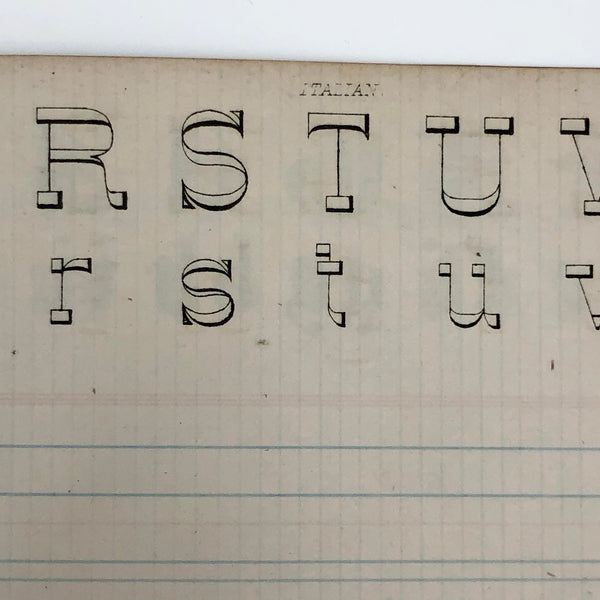 ITALIAN.
R S T U V
r s t u v